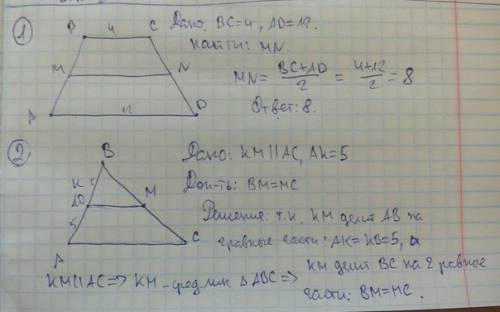 1 B 4 C Дано: BC=4, AD=12.
Найти: MN
M N MN= BC+AD/2 = 4+12/2 = 8
A 12 D Ответ: 8.
2 B Дано: KM||AC, AK=5
K 10 M Док-ть: BM=MC
5 Решение: т.к. KM делит AB на
A C равные части: AK=KB=5, а
KM||AC=> KM-сред.лин. △ABC=> KM делит BC на 2 равные
части: BM=MC.